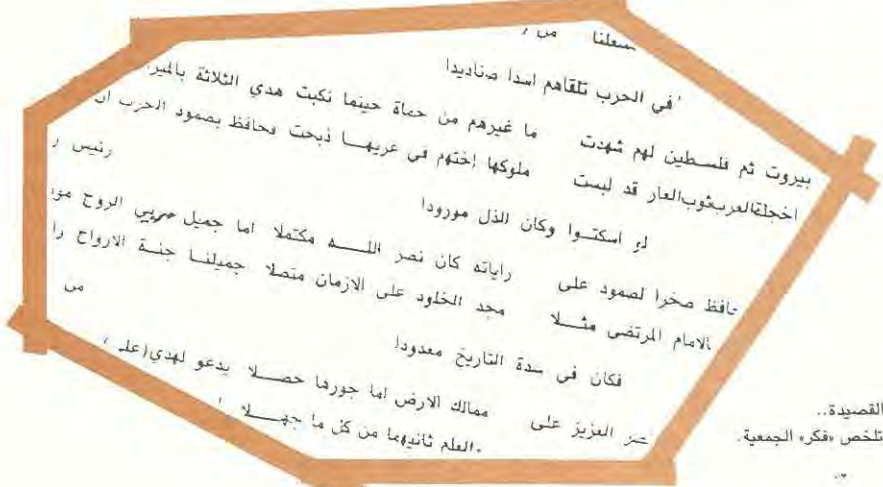 في الحرب تلقاهم اسدا صناديدا
بيروت ثم فلسطين لهم شهدت ما غيرهم من حماة حينما نكبت هدي الثلاثة
اخجلةالعرب ثوب العار قد لبست ملوكها إختهم في عريهـا ذبحت فحافظ بصمود الحرب
رئيس
لو اسكتـوا وكان الذل مورودا
صخرا لصمود على راياته كان نصر اللـه مكتملا اما جميل الروح
الامام المرتضى مثـلا مجد الخلود على الازمان متصلا جميلنـا جنـة الارواح
من
فكان في سدة التاريخ معدودا
العزيز على ممالك الارض اما جورها حصـلا يدعو لهدي
العلم ثانيهما من كل ما جهـلا
القصيدة..
تلخص «فكر» الجمعية.